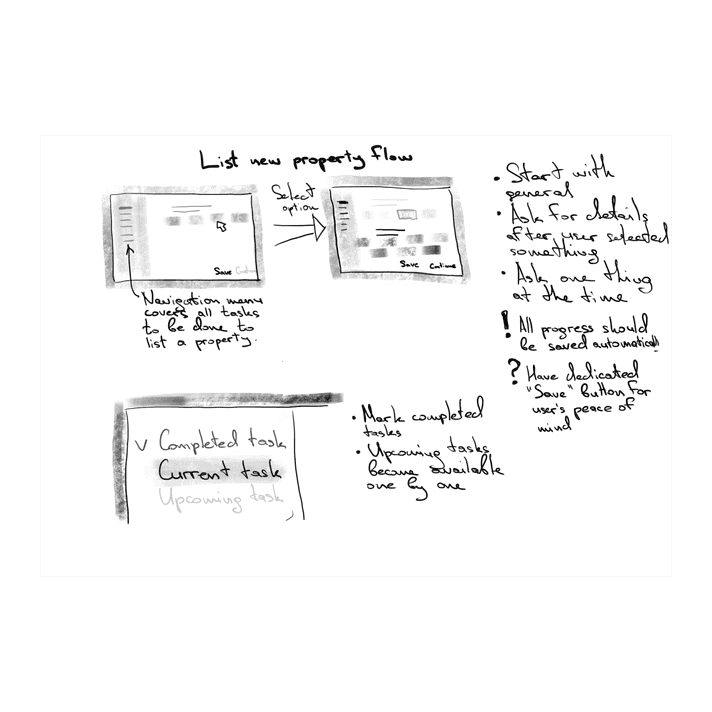 List new property flow
Select
option
Save Continue
Save Continue
Navigation menu
covers all tasks
to be done to
list a property.
• Start with
general
• Ask for details
after user selected
something
• Ask one thing
at the time
! All progress should
be saved automatically
? Have dedicated
"Save" button for
user's peace of
mind
V Completed task
Current task
Upcoming task
• Mark completed
tasks
• Upcoming tasks
became available
one by one